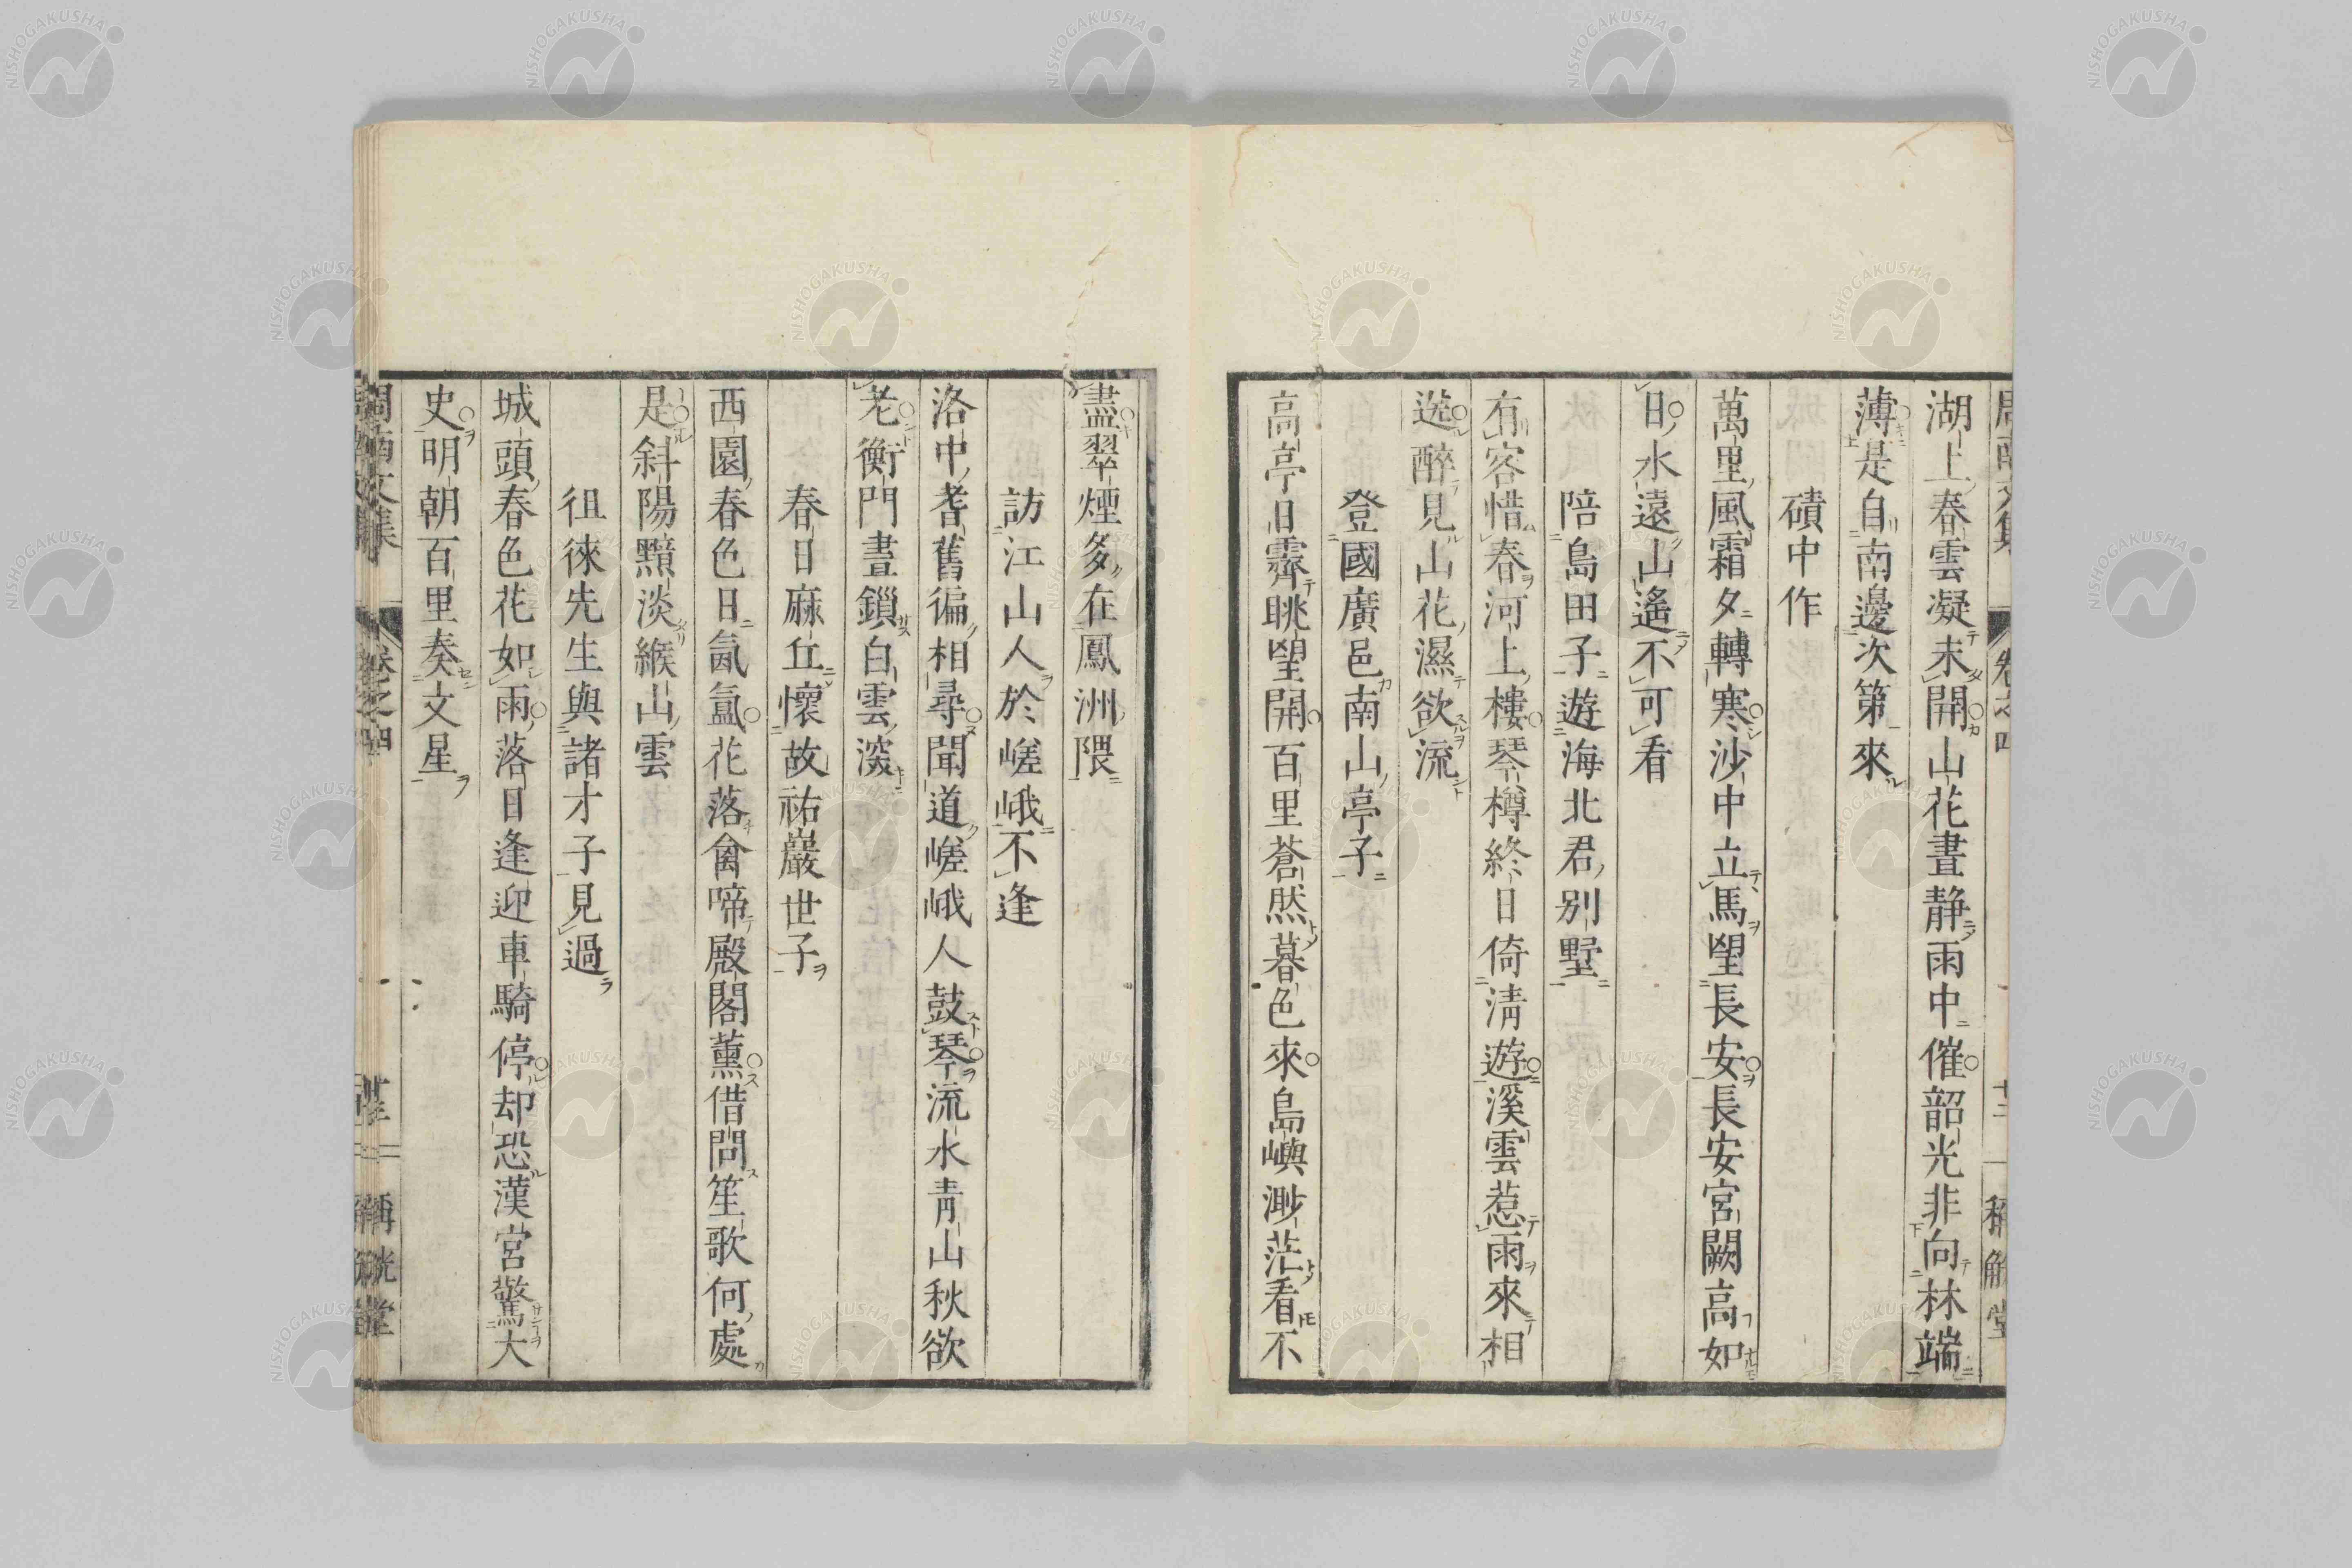 湖上春雲凝未開山花晝静雨中催韶光非向林端
薄是自南邊次第來
磧中作
萬里風霜夕轉寒沙中立馬望長安長安宮闕高如
日水遠山遙不可看
陪島田子遊海北君別墅
有客惜春河上樓琴樽終日倚淸遊溪雲惹雨來相
送醉見山花濕欲流
登國廣邑南山亭子
高亭日霽眺望開百里蒼然暮色來島嶼渺茫看不
盡翠煙多在鳳洲隈
訪江山人於嵯峨不逢
洛中耆舊徧相尋聞道嵯峨人鼓琴流水靑山秋欲
老衡門晝鎖白雲深
春日麻丘懷故祐巖世子
西園春色日氤氳花落禽啼殿閣薰借問笙歌何處
是斜陽黯淡緱山雲
徂徠先生與諸才子見過
城頭春色花如雨落日逢迎車騎停却恐漢宮驚大
史明朝百里奏文星
周南文集 卷之四 稱觥堂